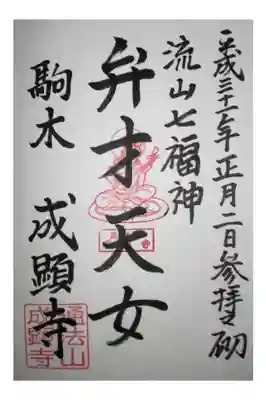 平成三十一年正月二日参拝砌
流山七福神
弁才天女
駒木 成顕寺
通法山
成顕寺